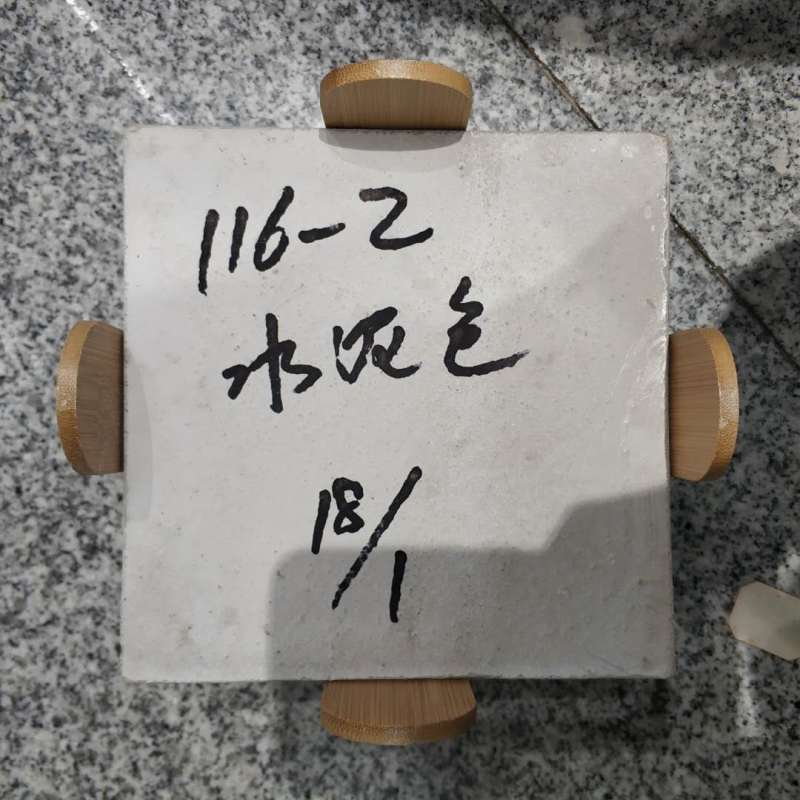 116-2
水泥色
18/1